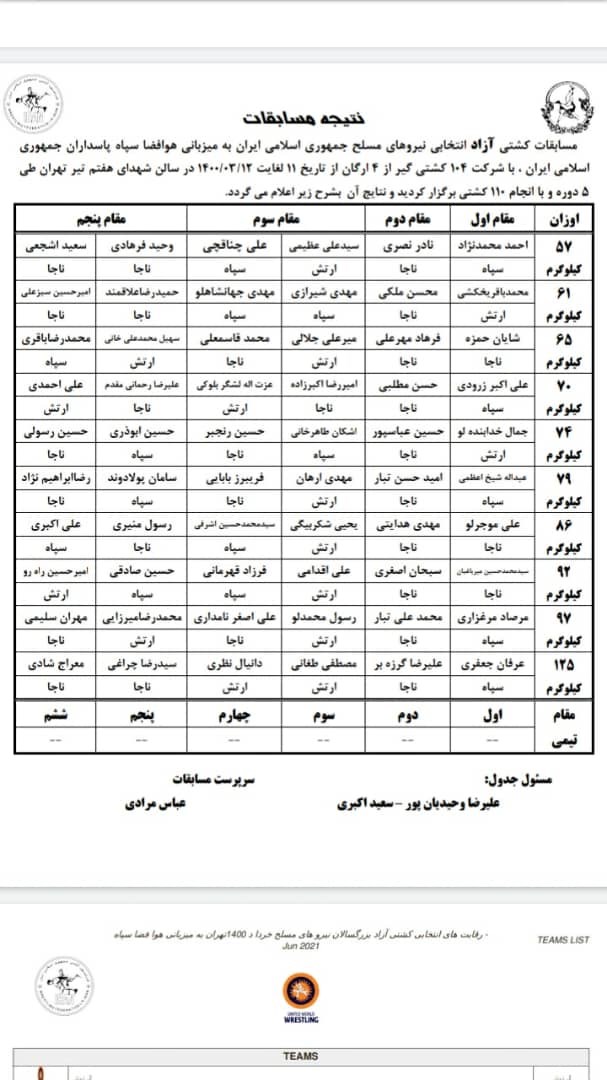 نتیجه مسابقات
مسابقات کشتی آزاد انتخابی نیروهای مسلح جمهوری اسلامی ایران به میزبانی هوافضا سپاه پاسداران جمهوری
اسلامی ایران ، با شرکت ۱۰۴ کشتی گیر از ۴ ارگان از تاریخ ۱۱ لغایت ۱۴۰۰/۰۳/۱۲ در سالن شهدای هفتم تیر تهران طی
۵ دوره و با انجام ۱۱۰ کشتی برگزار گردید و نتایج آن بشرح زیر اعلام می گردد.
اوزان مقام اول مقام دوم مقام سوم مقام پنجم
۵۷ احمد محمدنژاد نادر نصری سیدعلی عظیمی علی چناقچی وحید فرهادی سعید اشجعی
کیلوگرم سپاه ناجا ارتش سپاه ناجا ناجا
۶۱ محمدباقریخکشی محسن ملکی مهدی شیرازی مهدی جهانشاهلو حمیدرضاعلاقمند امیرحسین سبزعلی
کیلوگرم ارتش ناجا سپاه سپاه ناجا ناجا
۶۵ شایان حمزه فرهاد مهرعلی میرعلی جلالی محمد قاسمعلی سهیل محمدعلی خانی محمدرضاباقری
کیلوگرم ناجا ناجا ارتش ناجا ارتش سپاه
۷۰ علی اکبر زرودی حسن مطلبی امیررضا اکبرزاده عزت اله لشگر بلوکی علیرضا رحمانی مقدم علی احمدی
کیلوگرم سپاه ناجا ناجا ارتش ناجا ارتش
۷۴ جمال خدابنده لو حسین عباسپور اشکان طاهرخانی حسین رنجبر حسین ابوذری حسین رسولی
کیلوگرم ارتش ناجا ناجا سپاه سپاه ناجا
۷۹ عبداله شیخ اعظمی امید حسن تبار مهدی ارهان فریبرز بابایی سامان پولادوند رضاابراهیم نژاد
کیلوگرم سپاه ناجا ارتش ناجا سپاه ناجا
۸۶ علی موجرلو مهدی هدایتی یحیی شکربیگی سیدمحمدحسین اشرفی رسول منیری علی اکبری
کیلوگرم ناجا ناجا ارتش سپاه ناجا سپاه
۹۲ سیدمحمدحسین میرباغبان سبحان اصغری علی اقدامی فرزاد قهرمانی حسین صادقی امیرحسین راه رو
کیلوگرم ناجا ناجا ارتش سپاه سپاه ارتش
۹۷ مرصاد مرغزاری محمد علی تبار رسول محمدلو علی اصغر نامداری محمدرضامیرزایی مهران سلیمی
کیلوگرم سپاه ناجا ارتش ناجا ارتش ناجا
۱۲۵ عرفان جعفری علیرضا گرزه بر مصطفی طغانی دانیال نظری سیدرضا چراغی معراج شادی
کیلوگرم سپاه ناجا ارتش ارتش ناجا ناجا
مقام اول دوم سوم چهارم پنجم ششم
تیمی -- -- -- -- -- --
مسئول جدول: سرپرست مسابقات
علیرضا وحیدیان پور – سعید اکبری عباس مرادی
- رقابت های انتخابی کشتی آزاد بزرگسالان نیرو های مسلح خردا د 1400تهران به میزبانی هوا فضا سپاه TEAMS LIST
Jun 2021
UNITED WORLD
WRESTLING
TEAMS